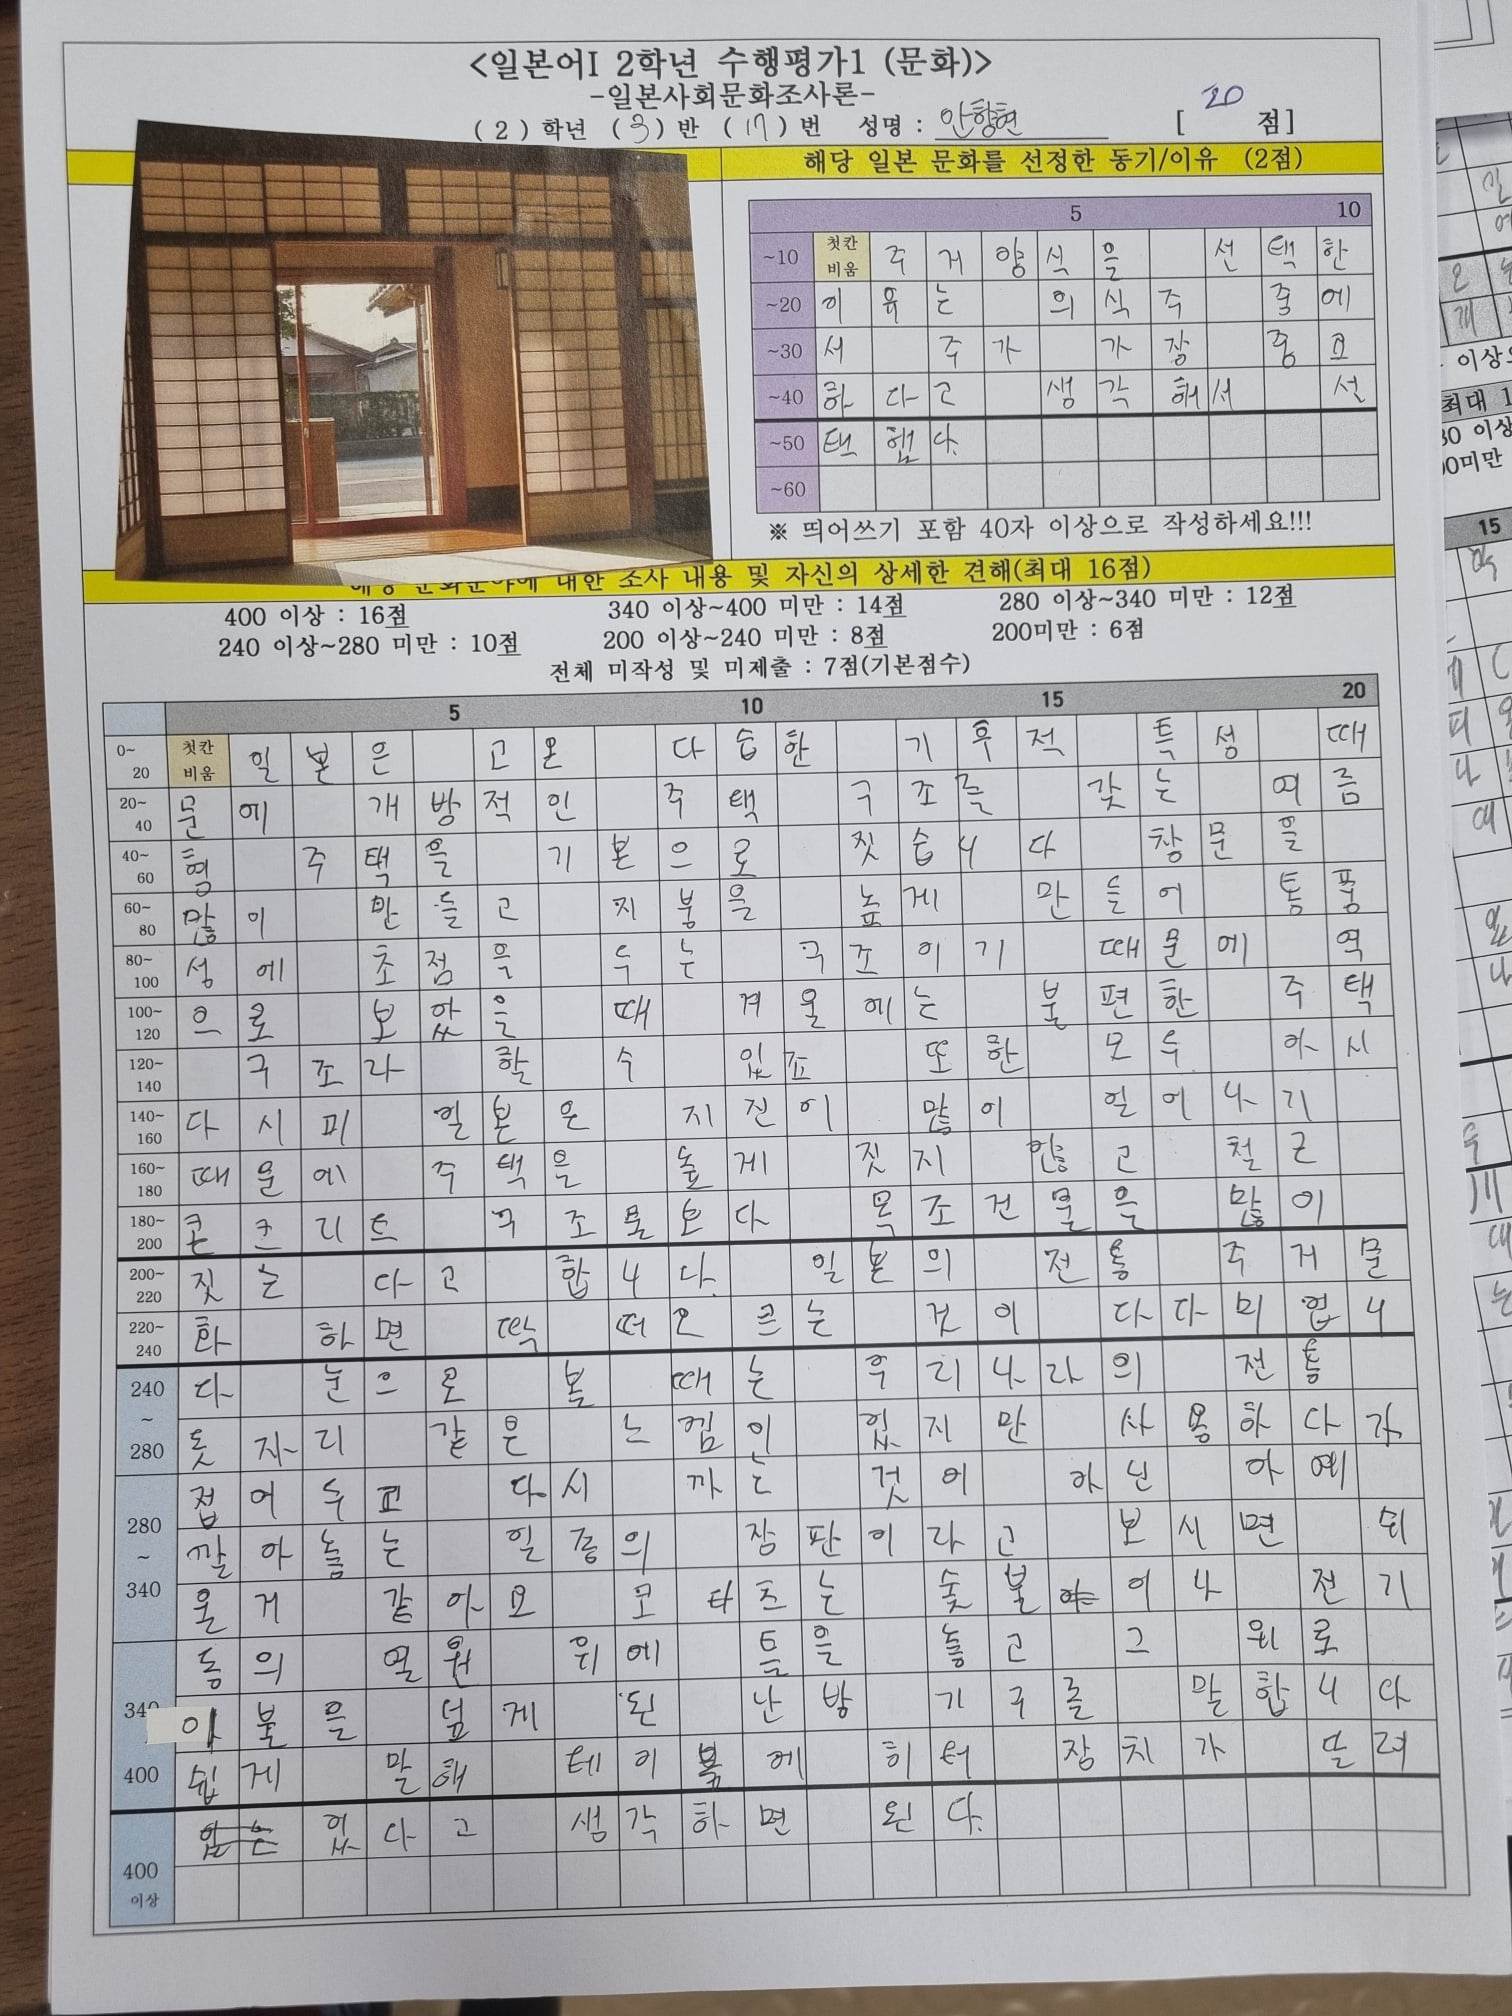 <일본어I 2학년 수행평가1 (문화)>
-일본사회문화조사론-
( 2 ) 학년 ( 3 ) 반 ( 17 ) 번 성명 : 안항현 [ 20 점]
해당 일본 문화를 선정한 동기/이유 (2점)
5 10
~10 첫칸 비움 주거양식을 선택한
~20 이유는 의식주 중에
~30 서 주가 가장 중요
~40 하다고 생각해서 선
~50 택했다.
~60
※ 띄어쓰기 포함 40자 이상으로 작성하세요!!!
해당 문화분야에 대한 조사 내용 및 자신의 상세한 견해(최대 16점)
400 이상 : 16점 340 이상~400 미만 : 14점 280 이상~340 미만 : 12점
240 이상~280 미만 : 10점 200 이상~240 미만 : 8점 200미만 : 6점
전체 미작성 및 미제출 : 7점(기본점수)
5 10 15 20
0~20 첫칸 비움 일본은 고온 다습한 기후적 특성 때
20~40 문에 개방적인 주택 구조를 갖는 여름
40~60 형 주택을 기본으로 짓습니다 창문을
60~80 많이 만들고 지붕을 높게 만들어 통풍
80~100 성에 초점을 두는 구조이기 때문에 역
100~120 으로 보았을 때 겨울에는 불편한 주택
120~140 구조라 할 수 있죠 또한 모두 아시
140~160 다시피 일본은 지진이 많이 일어나기
160~180 때문에 주택은 높게 짓지 않고 철근
180~200 콘크리트 구조물보다 목조건물을 많이
200~220 짓는 다고 합니다. 일본의 전통 주거문
220~240 화 하면 딱 떠오르는 것이 다다미 입니
240 다 눈으로 볼 때는 우리나라의 전통
~
280 돗자리 같은 느낌인 있지만 사용하다가
280 접어두고 다시 까는 것이 아닌 아예
~ 깔아놓는 일종의 장판이라고 보시면 쉬
340 울거 같아요 코타츠는 숯불이나 전기
등의 열원 위에 틀을 놓고 그 위로
340 이불을 덮게 된 난방 기구를 말합니다
400 쉽게 말해 테이블에 히터 장치가 달려
있다고 생각하면 된다.
400
이상